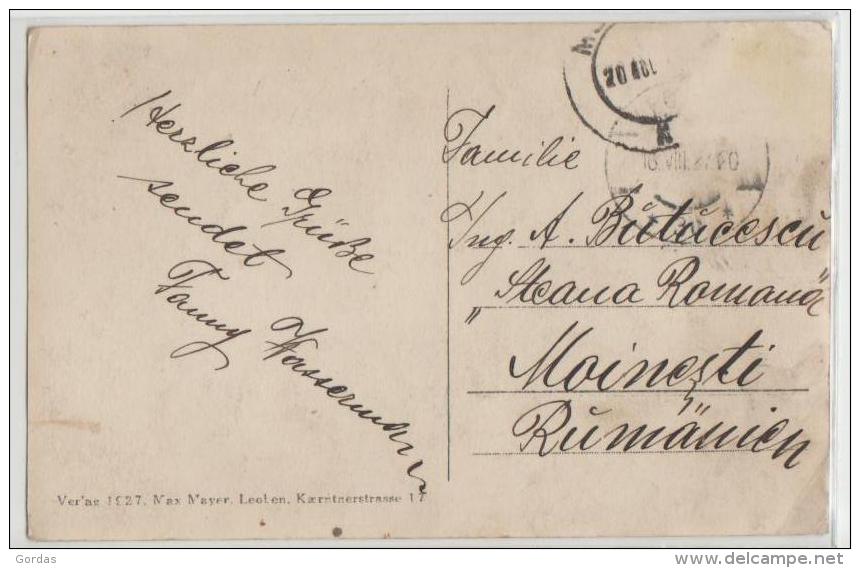 Herzliche Grüße
sendet
Fanny Wassermann
Familie
Ing. A. Butucescu
„Steaua Romana"
Moinești
Rumänien
20 AUG.
18.VIII.27
Verlag 1927, Max Mayer, Leoben, Kærntnerstrasse 17
Gordas
delcampe.net